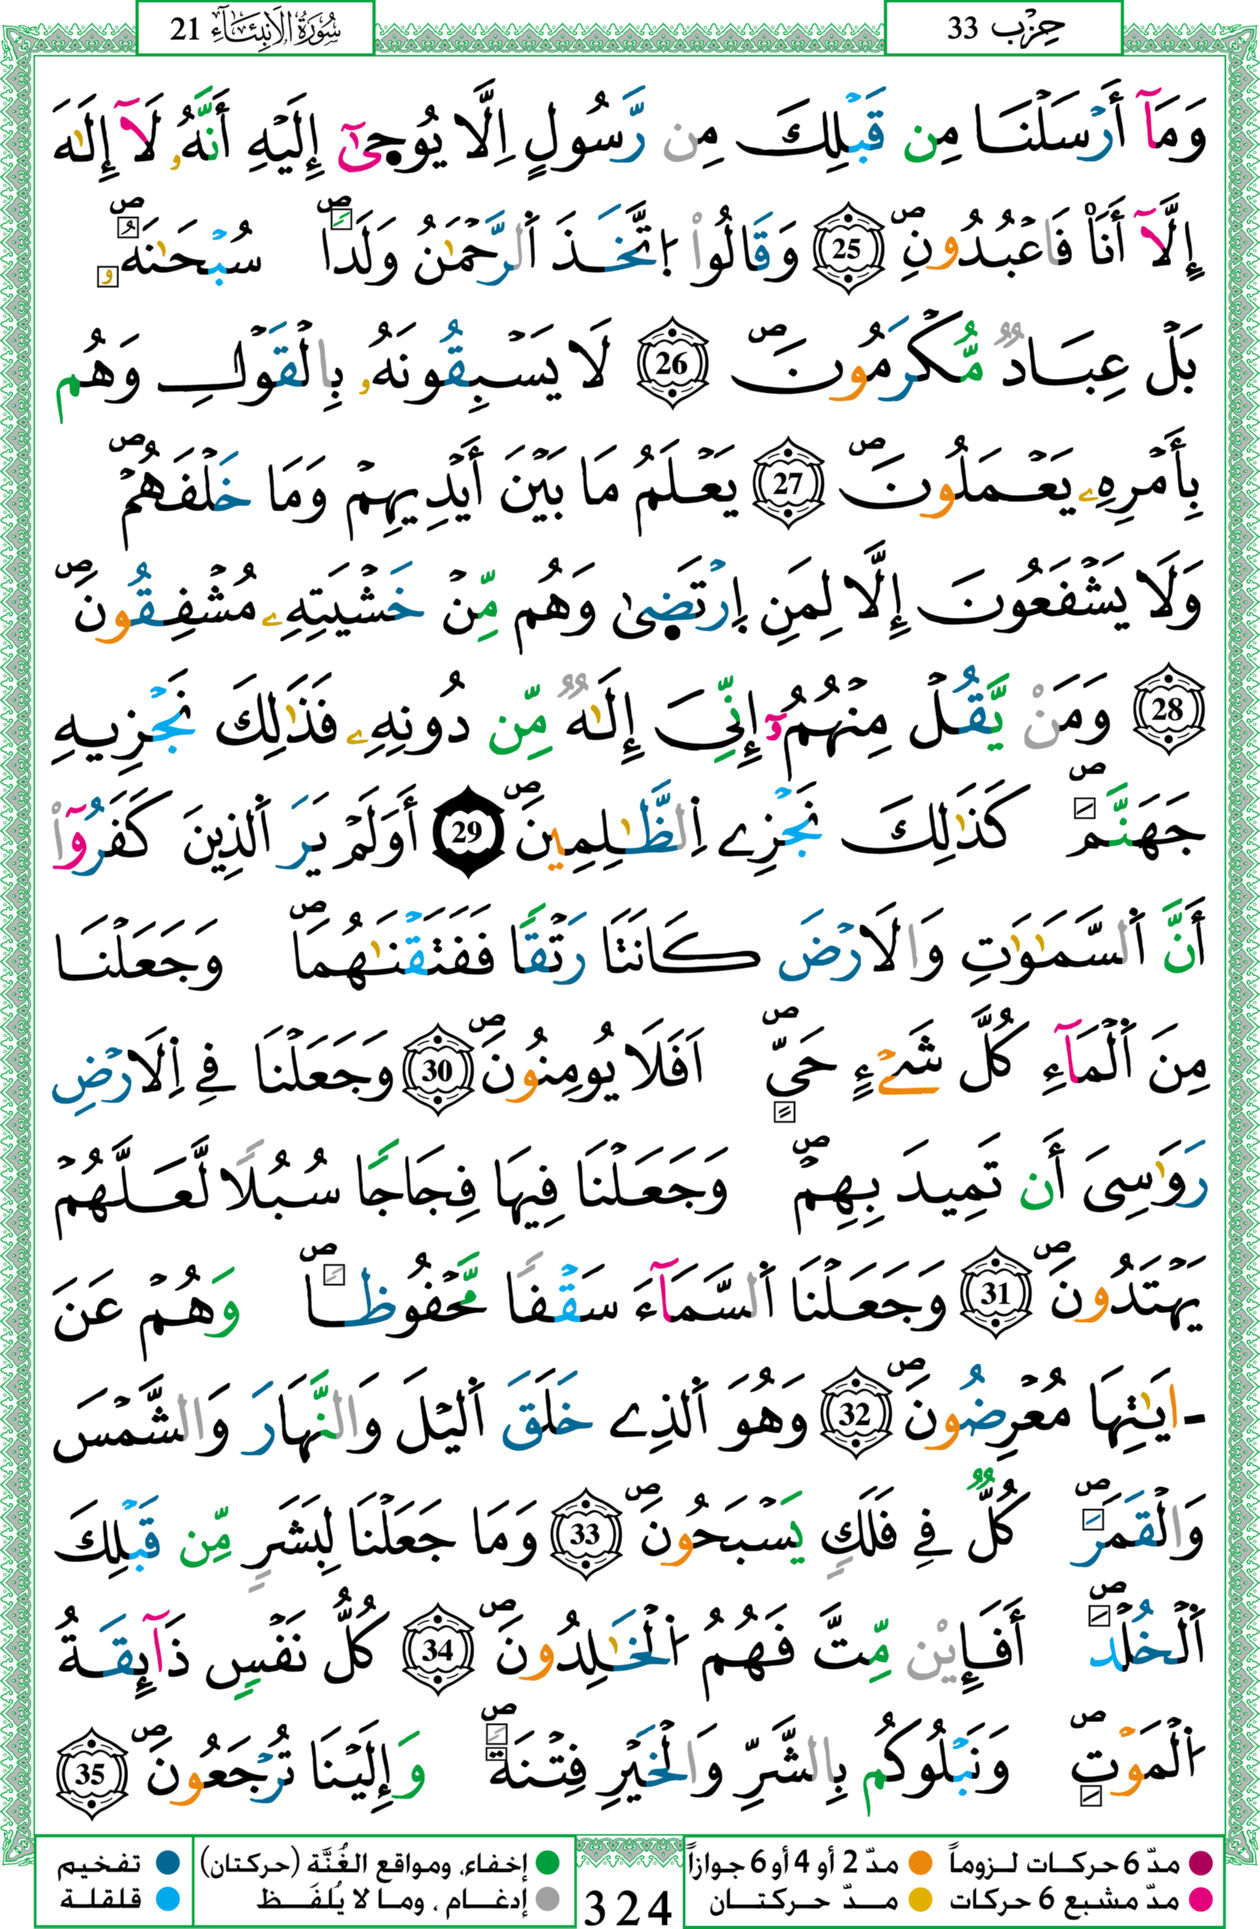 سُورَةُ الَانبِيَآءِ 21
حِزْب 33
وَمَآ أَرْسَلْنَا مِن قَبْلِكَ مِن رَّسُولٍ اِلَّا يُوح۪يٰٓ إِلَيْهِ أَنَّهُۥ لَآ إِلَٰهَ
إِلَّآ أَنَا۠ فَاعْبُدُونِۖ 25 وَقَالُواْ اُ۪تَّخَذَ اَ۬لرَّحْمَٰنُ وَلَداٗۖ سُبْحَٰنَهُۥۖ
بَلْ عِبَادٞ مُّكْرَمُونَۖ 26 لَا يَسْبِقُونَهُۥ بِالْقَوْلِ وَهُم
بِأَمْرِهِۦ يَعْمَلُونَۖ 27 يَعْلَمُ مَا بَيْنَ أَيْدِيهِمْ وَمَا خَلْفَهُمْۖ
وَلَا يَشْفَعُونَ إِلَّا لِمَنِ اِ۪رْتَض۪يٰ وَهُم مِّنْ خَشْيَتِهِۦ مُشْفِقُونَۖ
28 وَمَنْ يَّقُلْ مِنْهُمُۥٓ إِنِّيَ إِلَٰهٞ مِّن دُونِهِۦ فَذَٰلِكَ نَجْزِيهِ
جَهَنَّمَۖ كَذَٰلِكَ نَجْزِے اِ۬لظَّٰلِمِينَۖ 29 أَوَلَمْ يَرَ اَ۬لذِينَ كَفَرُوٓاْ
أَنَّ اَ۬لسَّمَٰوَٰتِ وَالَارْضَ كَانَتَا رَتْقاٗ فَفَتَقْنَٰهُمَاۖ وَجَعَلْنَا
مِنَ اَ۬لْمَآءِ كُلَّ شَےْءٍ حَيٍّۖ اَفَلَا يُومِنُونَۖ 30 وَجَعَلْنَا فِے اِ۬لَارْضِ
رَوَٰسِيَ أَن تَمِيدَ بِهِمْۖ وَجَعَلْنَا فِيهَا فِجَاجاٗ سُبُلاٗ لَّعَلَّهُمْ
يَهْتَدُونَۖ 31 وَجَعَلْنَا اَ۬لسَّمَآءَ سَقْفاٗ مَّحْفُوظاٗۖ وَهُمْ عَنَ
ـ اٰيَٰتِهَا مُعْرِضُونَۖ 32 وَهُوَ اَ۬لذِے خَلَقَ اَ۬ليْلَ وَالنَّهَارَ وَالشَّمْسَ
وَالْقَمَرَۖ كُلّٞ فِے فَلَكٖ يَسْبَحُونَۖ 33 وَمَا جَعَلْنَا لِبَشَرٖ مِّن قَبْلِكَ
اَ۬لْخُلْدَۖ أَفَإِيْن مِّتَّ فَهُمُ اُ۬لْخَٰلِدُونَۖ 34 كُلُّ نَفْسٖ ذَآئِقَةُ
اُ۬لْمَوْتِۖ وَنَبْلُوكُم بِالشَّرِّ وَالْخَيْرِ فِتْنَةٗۖ وَإِلَيْنَا تُرْجَعُونَۖ 35
مدّ 6 حركات لـزوماً مدّ 2 أو 4 أو 6 جوازاً إخفاء، ومواقع الغُنَّة (حركتان) تفخيم
مدّ مشبع 6 حركات مـدّ حـركتـان إدغـام ، ومـا لا يُلفَـظ قلقلة
324